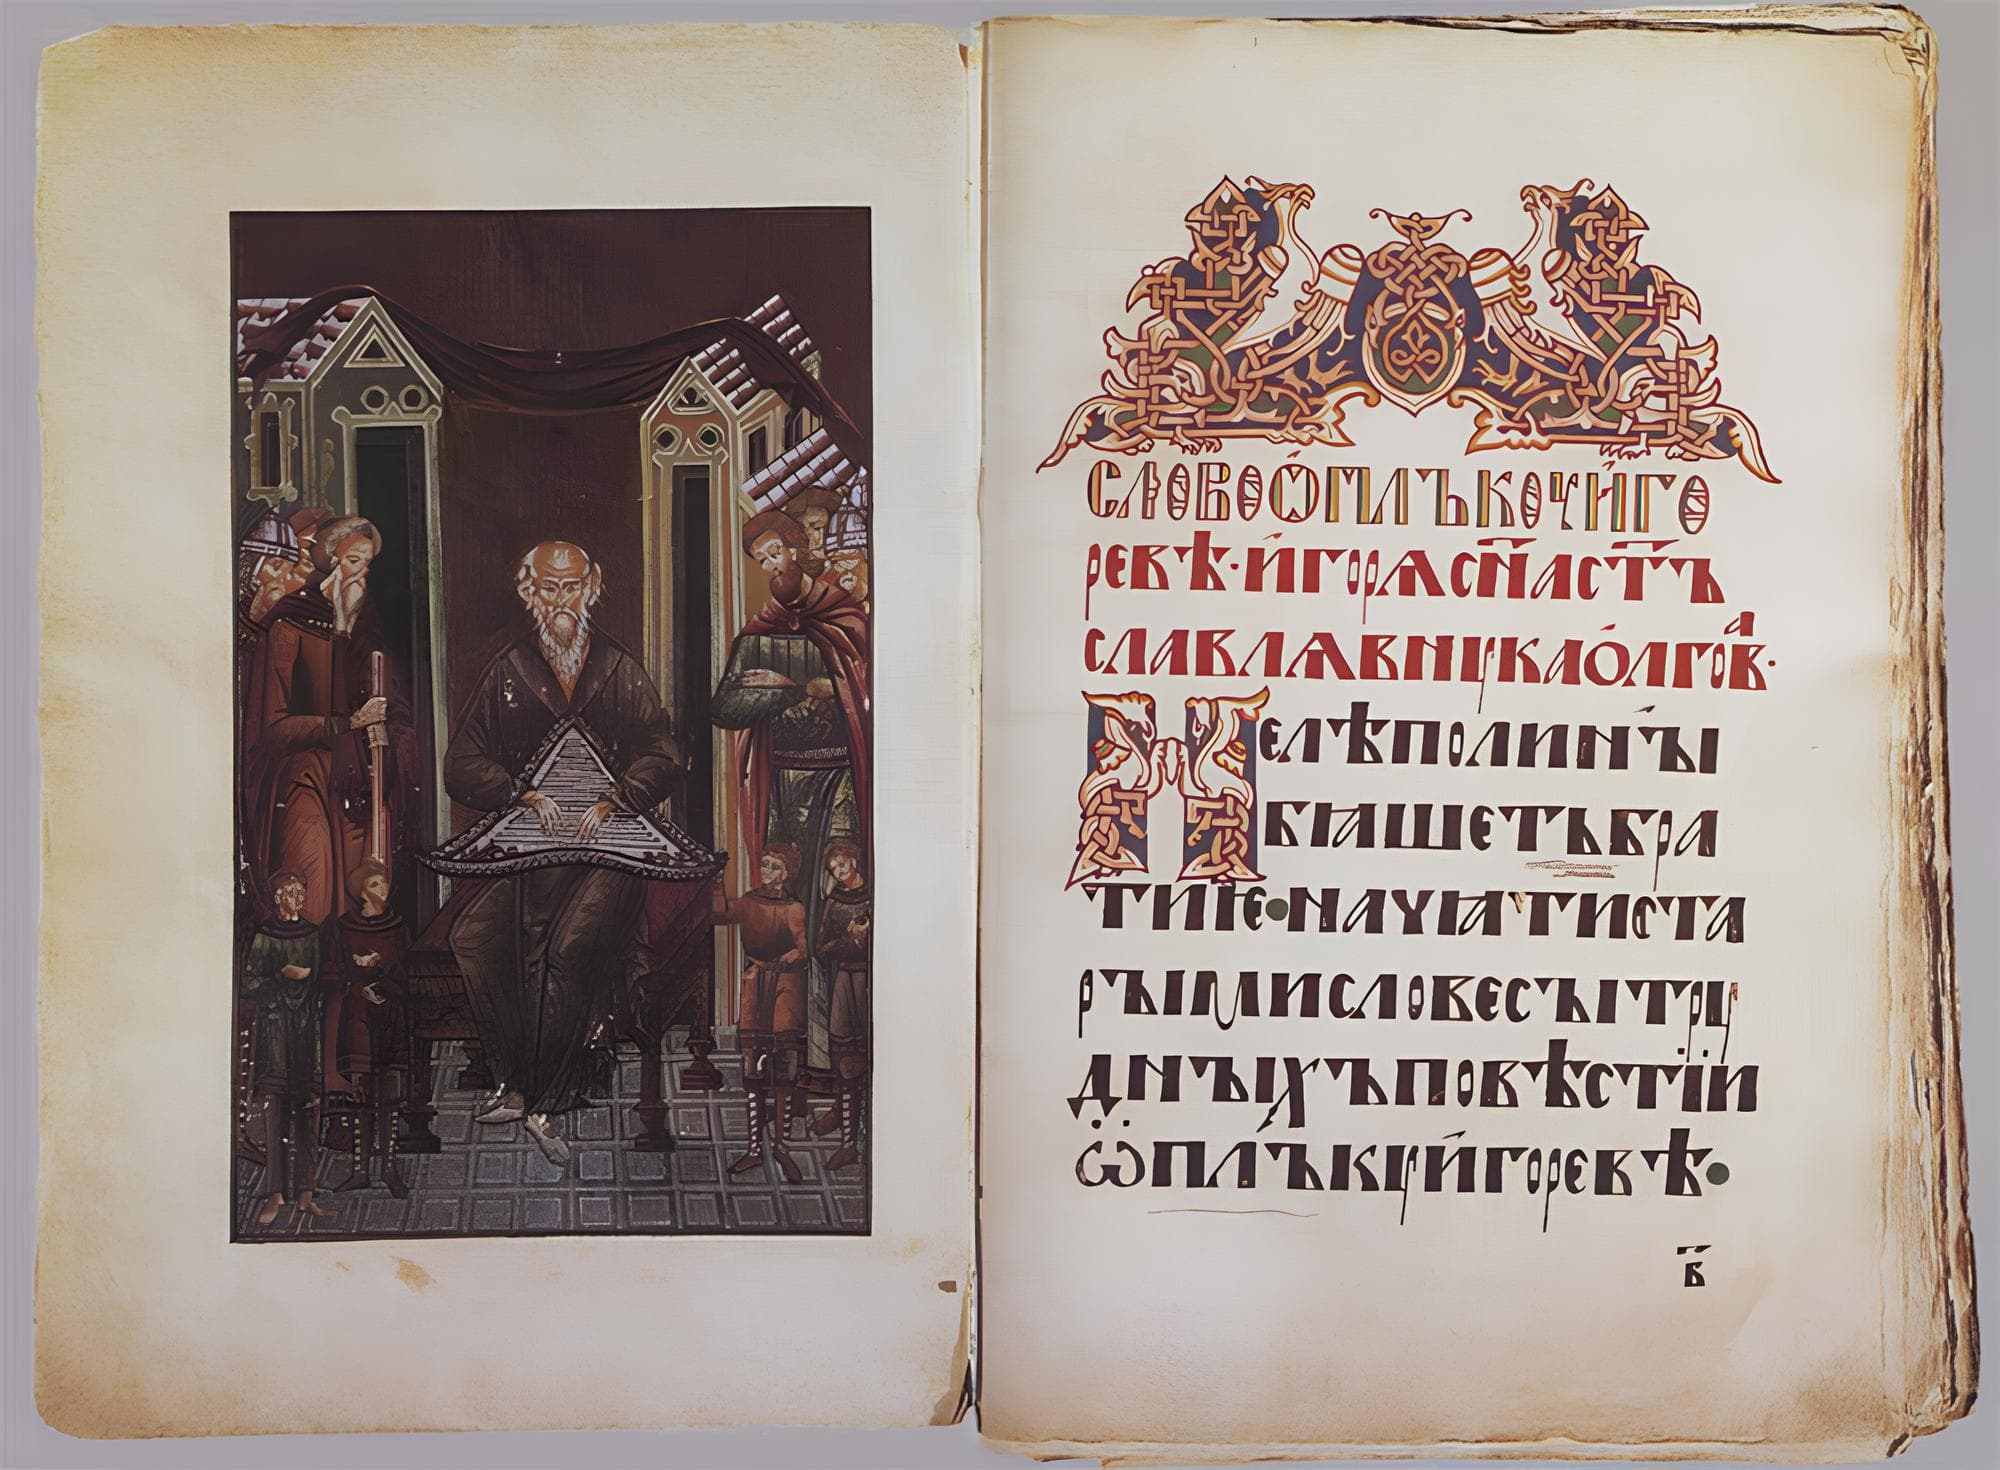 СЛОВООПЛЪКОУИГО
РЕВѢ·ИГОРѦСН҃АСТ҃Ъ
СЛАВЛѦВНУКАОЛГОВᲿА·
НЕЛѢПОЛИНЫ
БꙖШЕТЬБРА
ТИѤ•НАЧѦТИСТА
РЫМИСЛОВЕСЪІТРУ
ДНЪІХЪПОВѢСТІИ
ѾПЛЪКУИГОРЕВѢ•
В҃